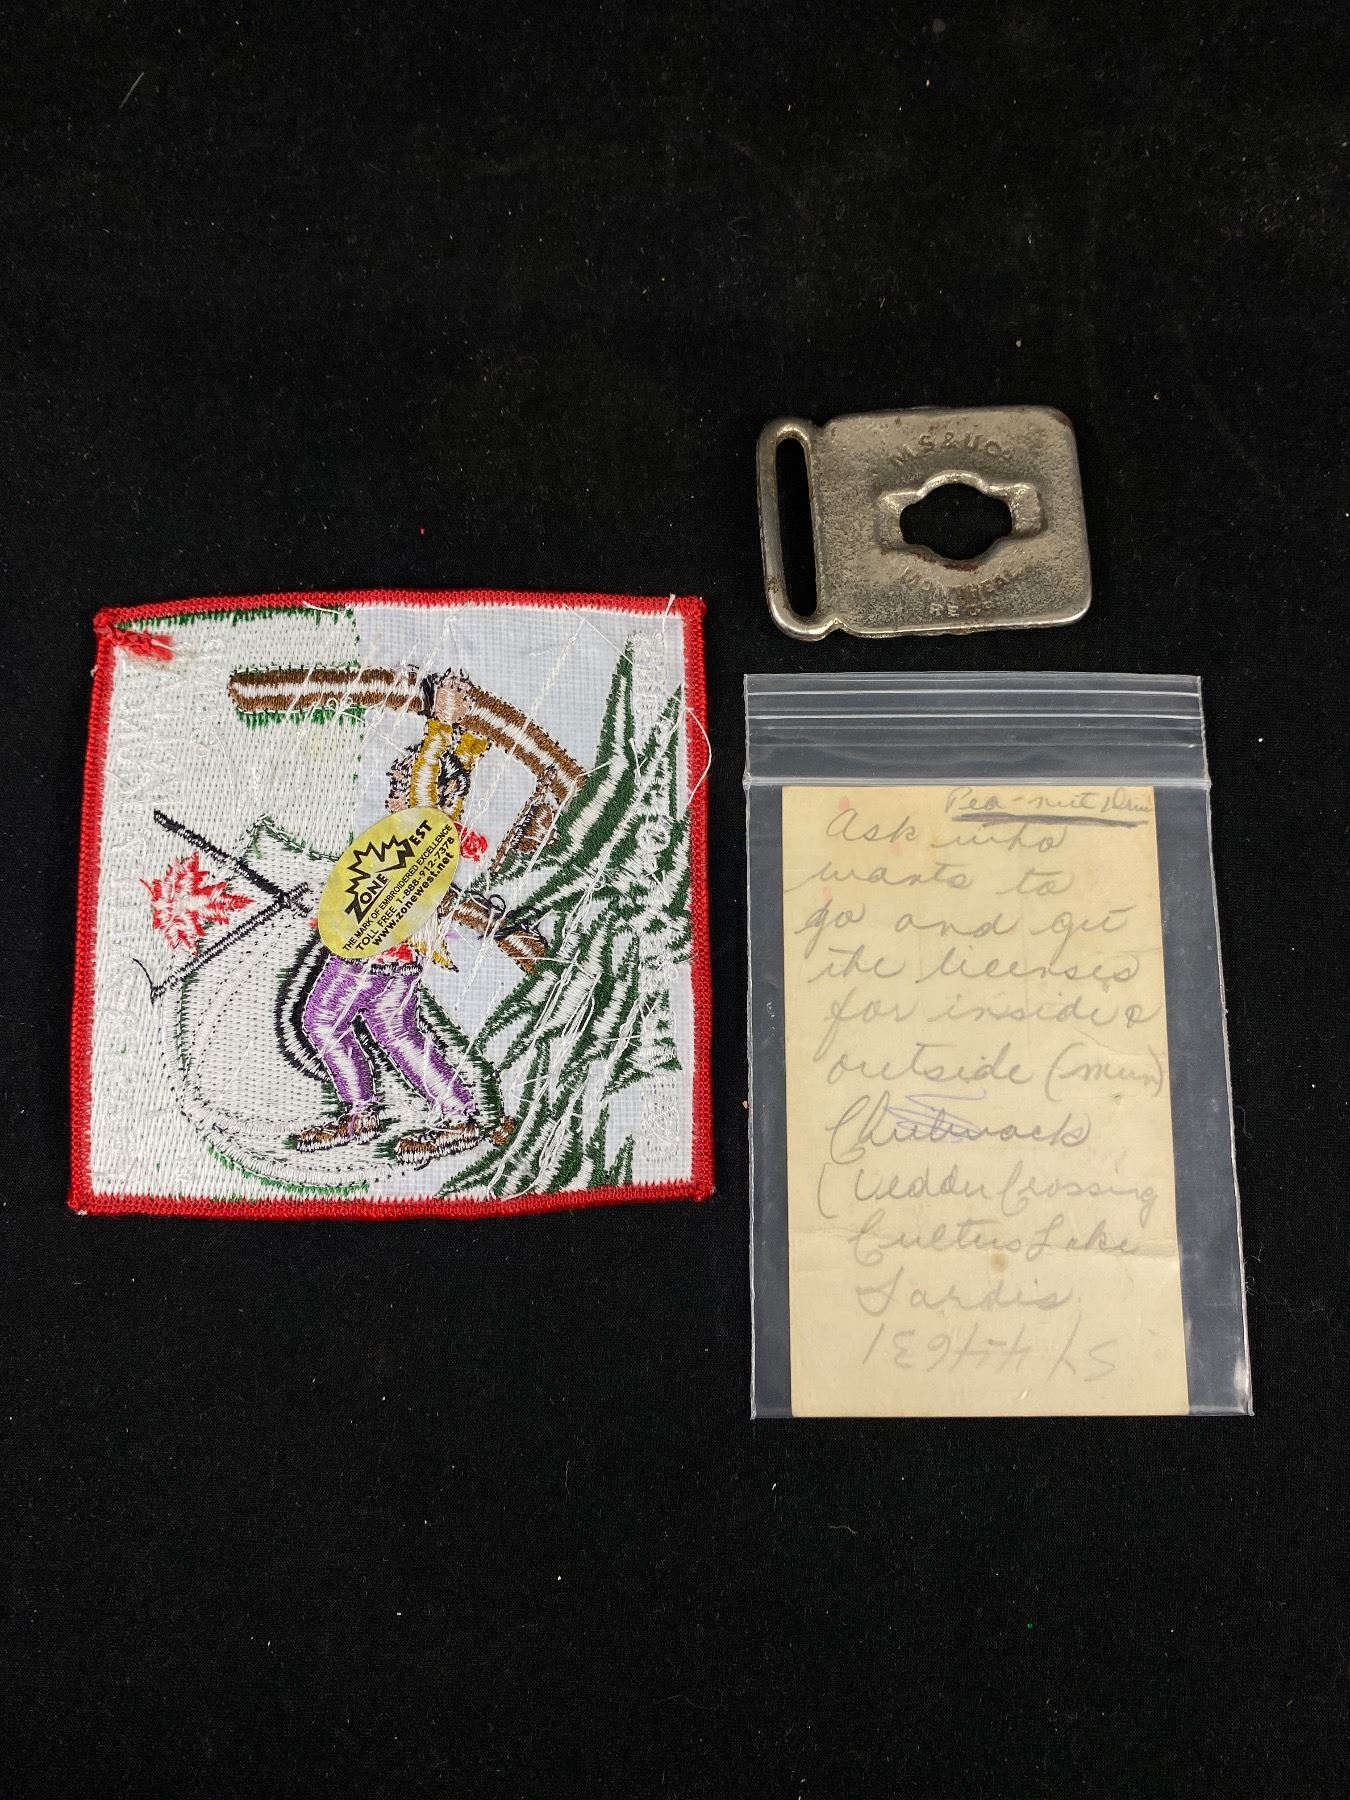 M.S & U Co.
MONTREAL
ZONE WEST
THE MARK OF EMBROIDERED EXCELLENCE
TOLL FREE 1-888-912-7378
www.zonewest.net
Pea-nut
Ask who
wants to
go and get
the licenses
for inside &
outside (mun)
Chilliwack
(Vedder Crossing
Cultus Lake
Sardis